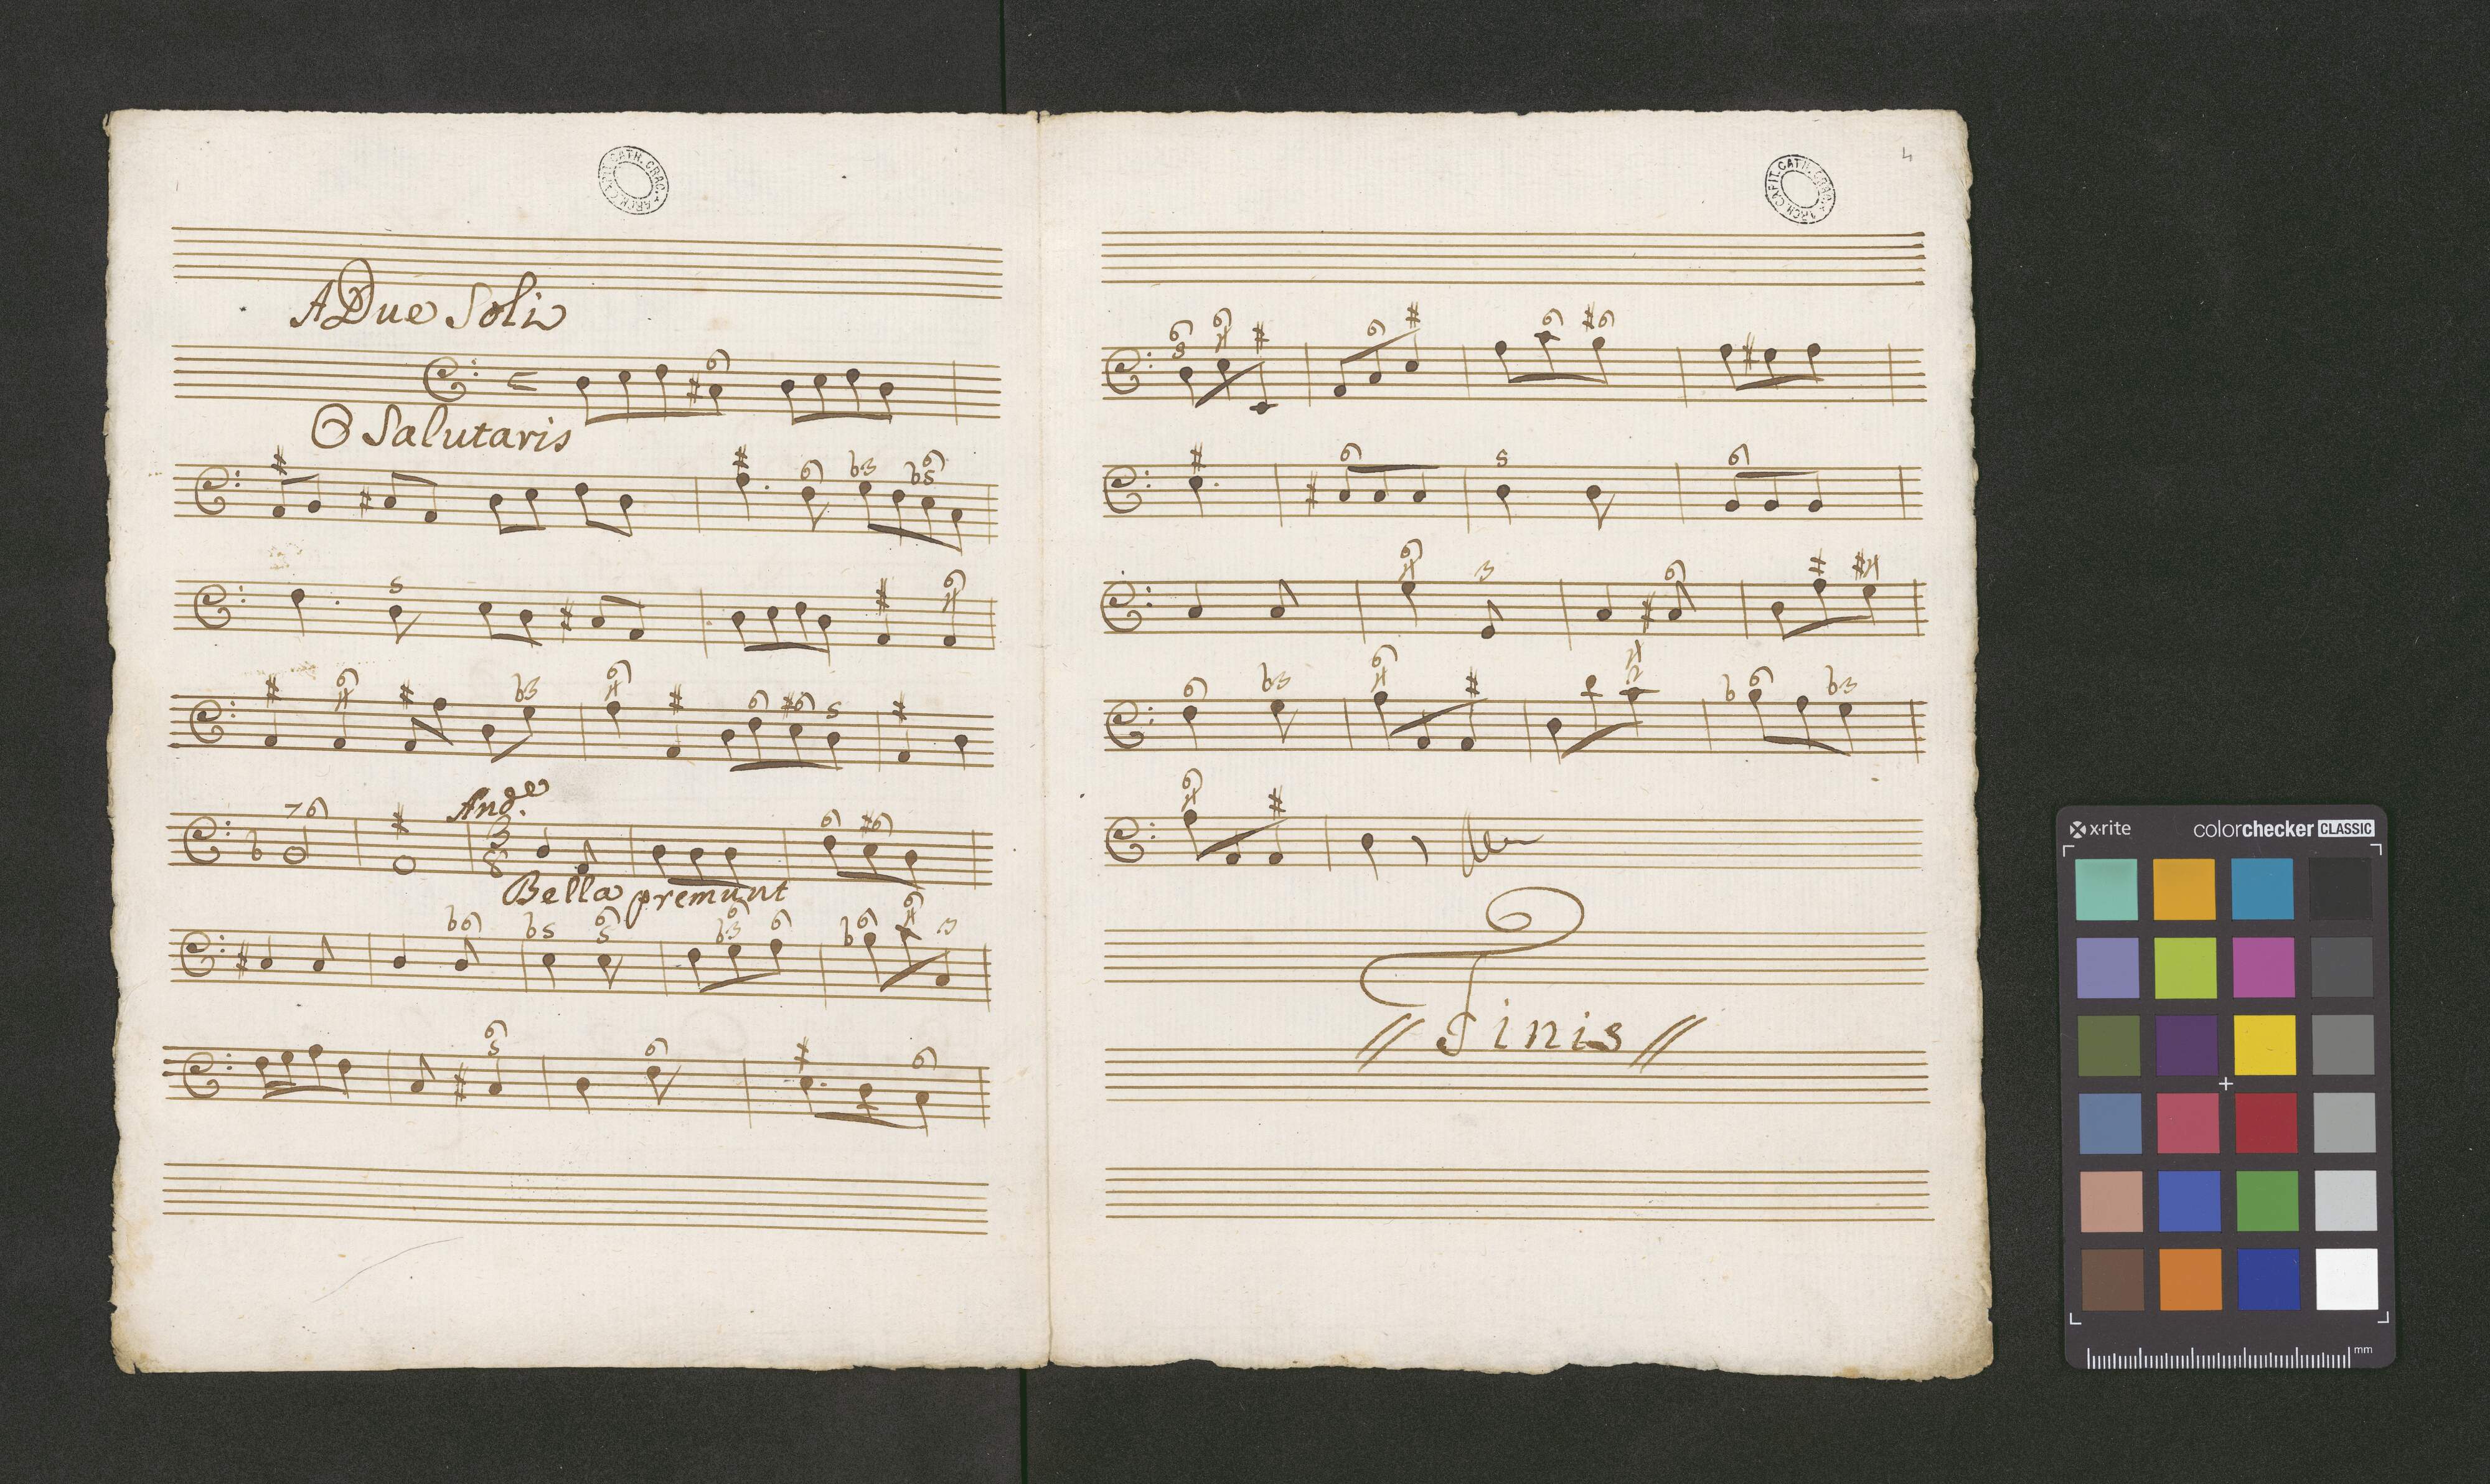 A Due Soli
O Salutaris
And.e
3
8
Bella premunt
ARCH. CAPIT. CATH. CRAC.
4
ARCH. CAPIT. CATH. CRAC.
// Finis //
x·rite colorchecker CLASSIC
mm